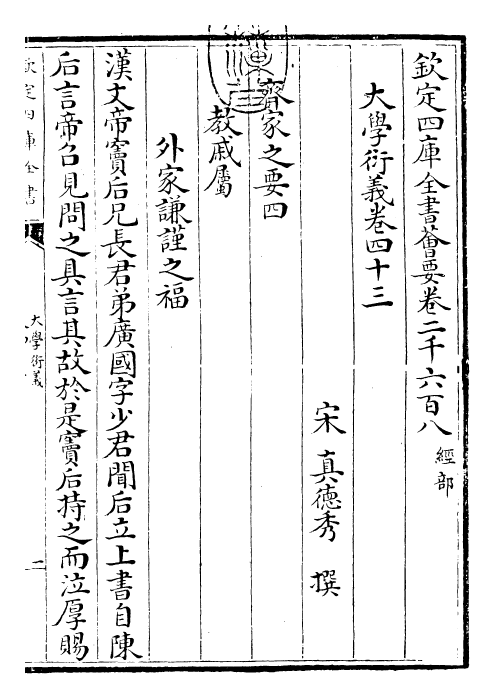 欽定四庫全書薈要卷二千六百八 經部
大學衍義卷四十三
宋 真德秀 撰
齊家之要四
教戚屬
外家謙謹之福
漢文帝竇后兄長君弟廣國字少君聞后立上書自陳
后言帝召見問之具言其故於是竇后持之而泣厚賜
欽定四庫全書
大學衍義